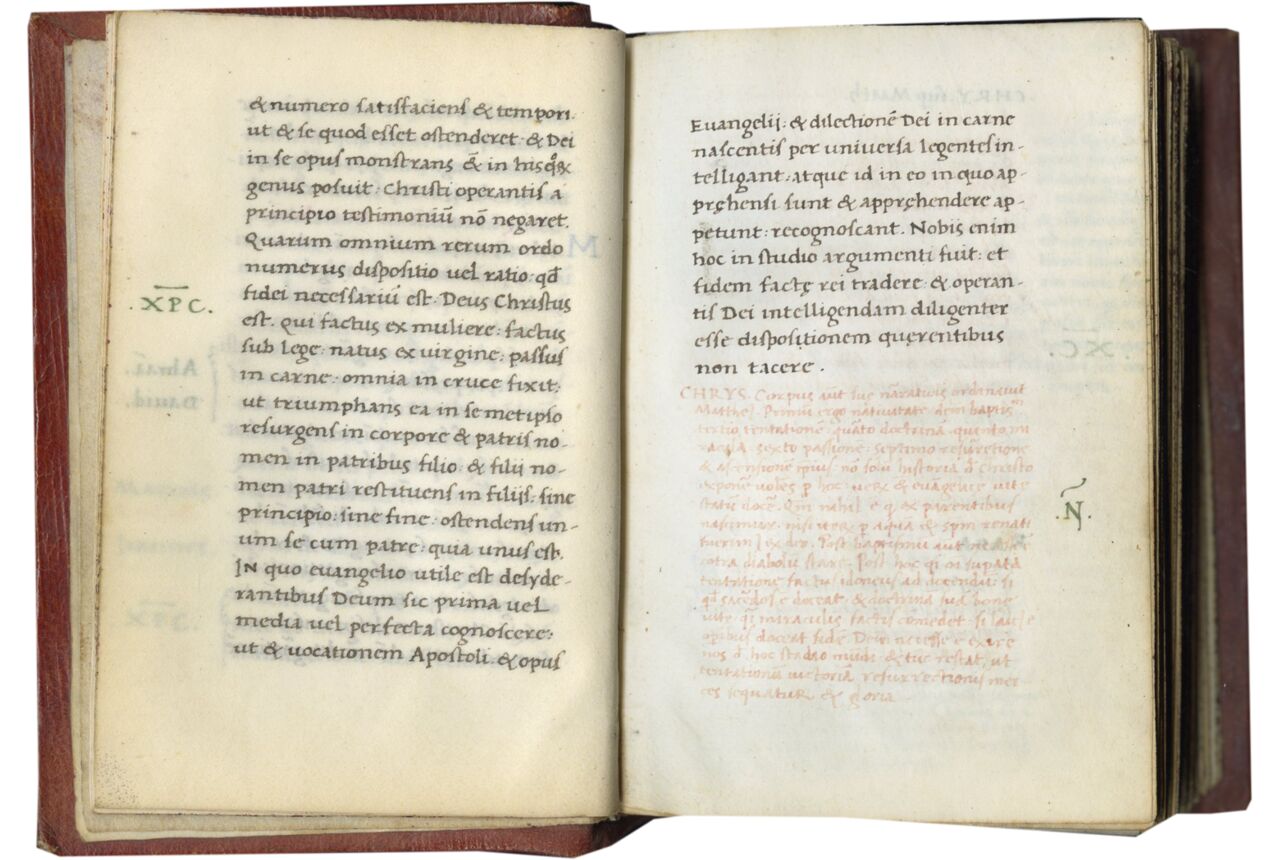 & numero satisfaciens & tempori.
ut & se quod esset ostenderet. & Dei
in se opus monstrans & in his qƺ
genus posuit: Christi operantis a
principio testimoniū nō negaret.
Quarum omnium rerum ordo
numerus dispositio uel ratio. qd̄
fidei necessariū est. Deus Christus
.XPC.
est. qui factus ex muliere: factus
sub lege: natus ex virgine: passus
in carne: omnia in cruce fixit:
ut triumphans ea in semetipso
resurgens in corpore & patris no-
men in patribus filio: & filii no-
men patri restituens in filijs: sine
principio: sine fine: ostendens un-
um se cum patre: quia unus est.
IN quo euangelio utile est desyde-
rantibus Deum sic prima uel
media uel perfecta cognoscere:
ut & uocationem Apostoli. & opus
Euangelij: & dilectionē Dei in carne
nascentis per universa legentes in-
telligant: atque id in eo in quo ap-
pręhensi sunt & appręhendere ap-
petunt: recognoscant. Nobis enim
hoc in studio argumenti fuit: et
fidem factę rei tradere: & operan-
tis Dei intelligendam diligenter
esse dispositionem quęrentibus
non tacere.
CHRYS. Corpus aūt suę narratiōis ordinauit
Matthęꝰ. Primū ergo natiuitatē dein baptis
tertio tentationē quarto doctrinā. quinto mi
racula. sexto passionē. septimo resurrectionē
& ascensionē ipius: nō solū historiā Christo
exponere hoc: & euangelicę uitę
statū docēs. nihil ē q ex parentibus
nascimur. nisi aqua & spm renati
fuerim ex deo. Post baptismū aūt
cōtra diabolū stare. Post hoc supata
tentatione factus idoneus ad docendū: si
sacerdos ē doceat: & doctrinā suā bonę
uitę miraculis factis comēdet. si laicꝰ
opibus doceat fidē. Dein necesse ē exire
nos d hoc stadio mūdi & tūc restat, ut
tentationū uictoriā resurrectionis mer-
ces sequatur & gloria
.N̄.